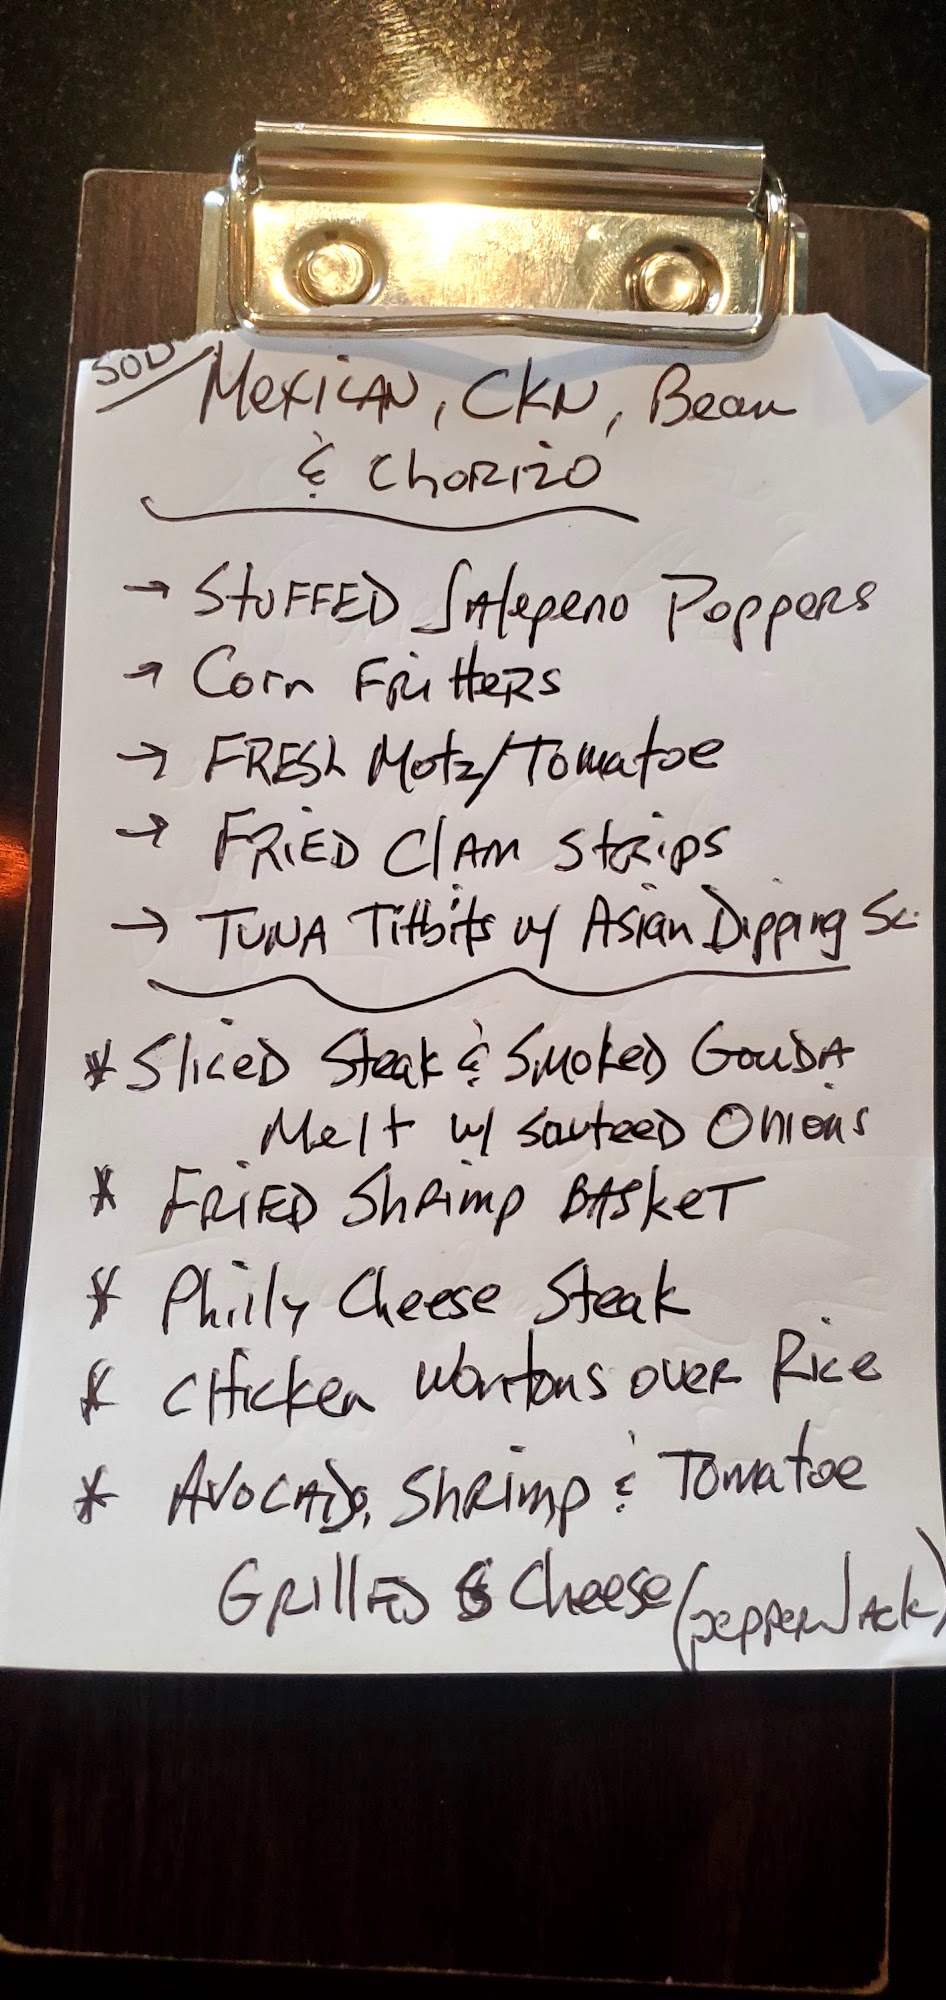 SOD/ Mexican, CKN, Bean
& Chorizo
→ Stuffed Jalepeno Poppers
→ Corn Fritters
→ Fresh Motz/Tomatoe
→ Fried Clam Strips
→ Tuna Titbits w/ Asian Dipping Sc.
* Sliced Steak & Smoked Gouda
Melt w/ Sauteed Onions
* Fried Shrimp Basket
* Philly Cheese Steak
* Chicken Wontons over Rice
* Avocado, Shrimp & Tomatoe
Grilled Cheese (pepper Jack)